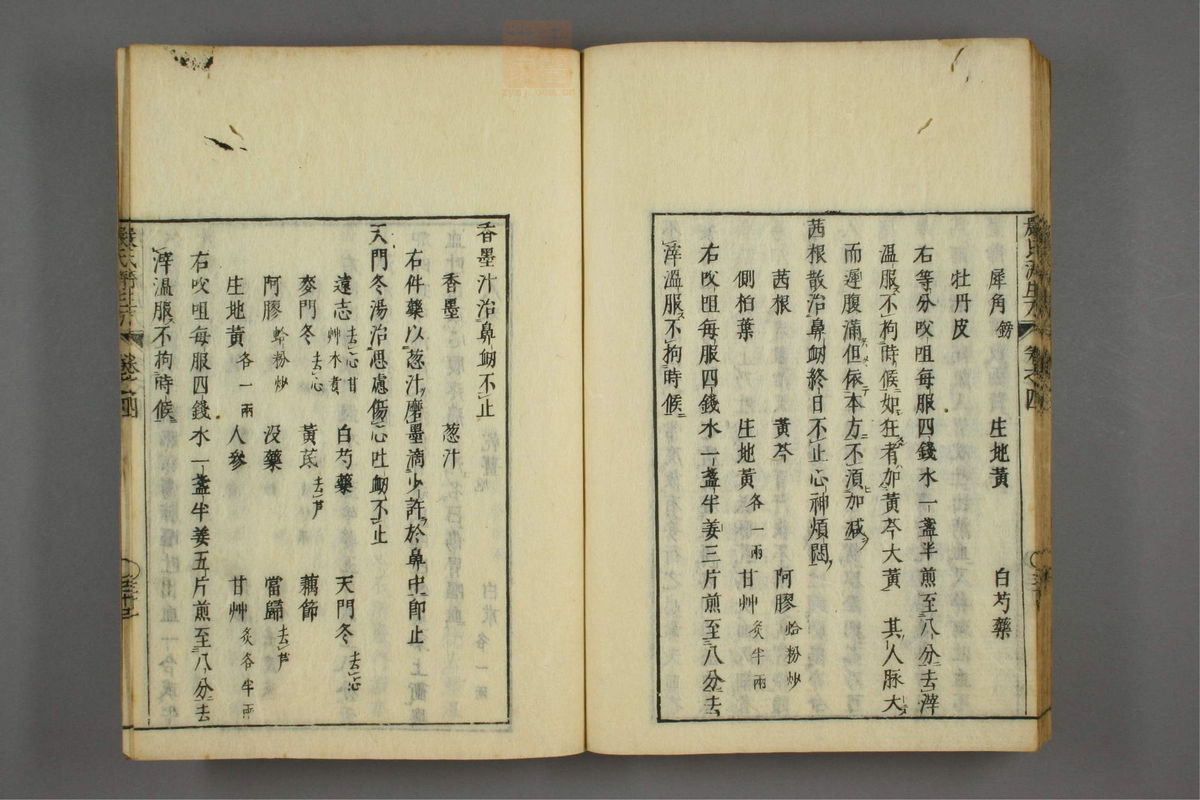 犀角鎊　生地黃　白芍藥
牡丹皮
右等分㕮咀每服四錢水一盞半煎至八分去滓
温服不拘時候如狂者加黃芩大黃　其人脉大
而遲腹滿但依本方不須加減
茜根散治鼻衂終日不止心神煩悶
茜根　黃芩　阿膠蛤粉炒
側柏葉　生地黃各一兩　甘艸炙半兩
右㕮咀每服四錢水一盞半姜三片煎至八分去
滓温服不拘時候
香墨汁治鼻衂不止
香墨　葱汁
右件藥以葱汁磨墨滴少許於鼻中卽止
天門冬湯治思慮傷心吐衂不止
遠志去心甘艸水煑　白芍藥　天門冬去心
麥門冬去心　黃芪去芦　藕節
阿膠蛤粉炒　没藥　當歸去芦
生地黃各一兩　人參　甘艸炙各半兩
右㕮咀每服四錢水一盞半姜五片煎至八分去
滓温服不拘時候
嚴氏濟生方　卷之四